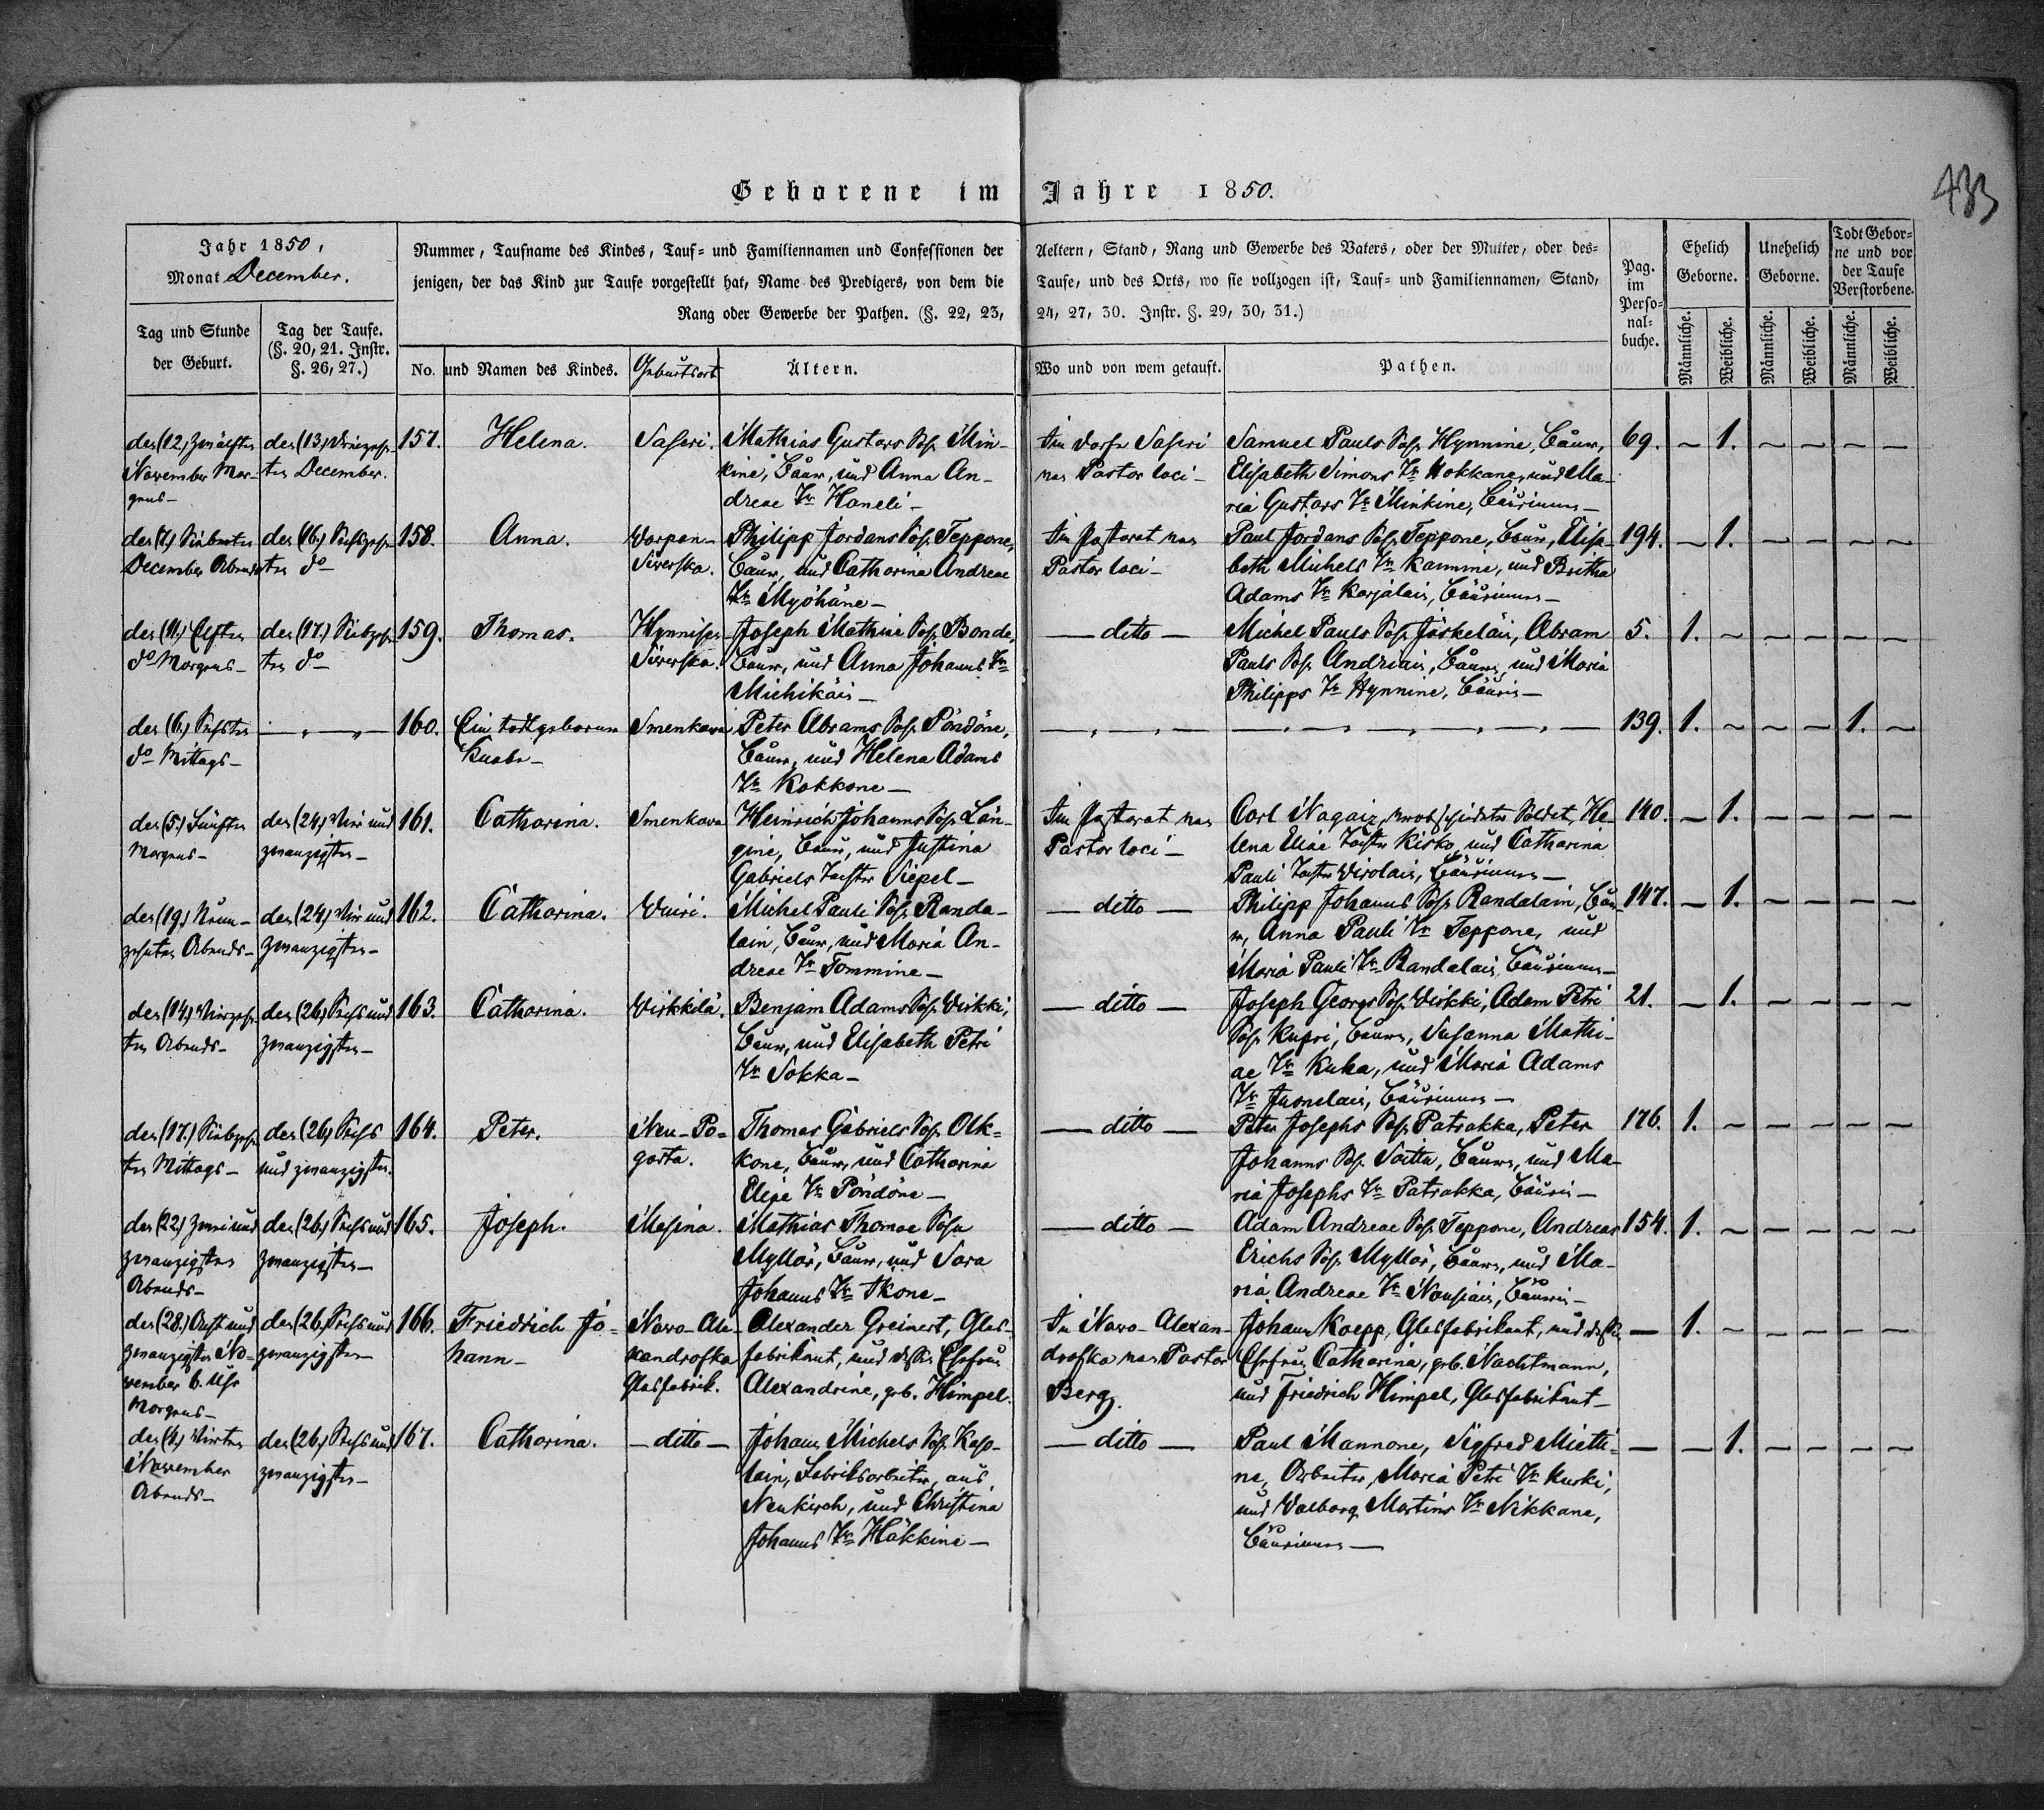 433
Geborene im Jahre 1850.
Jahr 1850,
Monat December.
Tag und Stunde
der Geburt.
Tag der Taufe.
(§. 20, 21. Instr.
§. 26, 27.)
Nummer, Taufname des Kindes, Tauf- und Familiennamen und Confessionen der Aeltern, Stand, Rang und Gewerbe des Vaters, oder der Mutter, oder des-
jenigen, der das Kind zur Taufe vorgestellt hat, Name des Predigers, von dem die Taufe, und des Orts, wo sie vollzogen ist, Tauf- und Familiennamen, Stand,
Rang oder Gewerbe der Pathen. (§. 22, 23, 24, 27, 30. Instr. §. 29, 30, 31.)
No. und Namen des Kindes.
Geburtsort
Ältern.
Wo und von wem getauft.
Pathen.
Pag.
im
Perso-
nal-
buche.
Ehelich
Geborne.
Unehelich
Geborne.
Todt Gebor-
ne und vor
der Taufe
Verstorbene.
Männliche.
Weibliche.
Männliche.
Weibliche.
Männliche.
Weibliche.
den (12.) zwölften
November Mor-
gens –
den (13.) dreizehn-
ten December.
157.
Helena.
Saseri.
Mathias Gustavs Soh. Min-
kine, Bauer, und Anna An-
dreae Tr Haneli –
Im Dorfe Saseri
von Pastor loci –
Samuel Pauls Soh. Hynnine, Bauer,
Elisabeth Simons Tr Kokkane, und Ma-
ria Gustavs Tr Minkine, Bäurinnen –
69. – 1. – – – –
den (7.) Siebenten
December Abends
den (16.) Sechszehn-
ten do –
158.
Anna.
Warpan-
Siwerska.
Philipp Jordans Soh. Teppone,
Bauer, und Catharina Andreae
Tr Myöhäne –
Im Pastorat von
Pastor loci –
Paul Jordans Soh. Teppone, Bauer, Elisa-
beth Michels Tr Kammine, und Britha
Adams Tr Karjalain, Bäurinnen –
194. – 1. – – – –
den (11.) Elften
do Morgens –
den (17.) Siebzehn-
ten do –
159.
Thomas.
Hynnisen-
Siwerska.
Joseph Mathiae Soh. Bonde,
Bauer, und Anna Johanns Tr
Michikäin –
– ditto –
Michel Pauls Soh. Jäskeläin, Abram
Pauls Soh. Andriain, Bauern, und Maria
Philipps Tr Hynnine, Bäurin –
5. 1. – – – – –
den (6.) Sechsten
do Mittags –
– „ – „ –
160.
Ein todtgeborener
Knabe –
Smenkowa
Peter Abrams Soh. Pöndöne,
Bauer, und Helena Adams
Tr Kokkone –
– „ – „ –
– „ – „ – „ – „ – „ –
139. 1. – – – 1. –
den (5.) Fünften
Morgens –
den (24.) Vier und
zwanzigsten –
161.
Catharina.
Smenkowa
Heinrich Johanns Soh. Län-
gine, Bauer, und Justina
Gabriels Tochter Siepel –
Im Pastorat von
Pastor loci –
Carl Nagain, verabschiedeter Soldat, He-
lena Eliae Tochter Kisko, und Catharina
Pauli Tochter Wirolain, Bäurinnen –
140. – 1. – – – –
den (19.) Neun-
zehnten Abends –
den (24.) Vier und
zwanzigsten –
162.
Catharina.
Wuiri.
Michel Pauli Soh. Randa-
lain, Bauer, und Maria An-
dreae Tr Tommine –
– ditto –
Philipp Johanns Soh. Randalain, Bau-
er, Anna Pauli Tr Teppone, und
Maria Pauli Tr Randalain, Bäurinnen –
147. – 1. – – – –
den (14.) Vierzehn-
ten Abends –
den (26.) Sechs und
zwanzigsten –
163.
Catharina.
Wirkkilä.
Benjam Adams Soh. Wirkki,
Bauer, und Elisabeth Petri
Tr Sokka –
– ditto –
Joseph Georgs Soh. Wirkki, Adam Petri
Soh. Kupri, Bauern, Susanna Mathi-
ae Tr Kuha, und Maria Adams
Tr Juonelain, Bäurinnen –
21. – 1. – – – –
den (17.) Siebzehn-
ten Mittags –
den (26.) Sechs
und zwanzigsten.
164.
Peter.
Neu-Po-
gosta.
Thomas Gabriels Soh. Olk-
kone, Bauer, und Catharina
Eliae Tr Pöndöne –
– ditto –
Peter Josephs Soh. Patrakka, Peter
Johanns Soh. Soittu, Bauern, und Ma-
ria Josephs Tr Patrakka, Bäurin –
176. 1. – – – – –
den (22.) Zwei und
zwanzigsten
Abends –
den (26.) Sechs und
zwanzigsten –
165.
Joseph.
Mesina.
Mathias Thomae Sohn
Myllär, Bauer, und Sara
Johanns Tr Ikone –
– ditto –
Adam Andreae Soh. Teppone, Andreas
Erichs Soh. Myllär, Bauern, und Ma-
ria Andreae Tr Nousiain, Bäurin –
154. 1. – – – – –
den (28.) Acht und
zwanzigsten No-
vember 6. Uhr
Morgens –
den (26.) Sechs und
zwanzigsten –
166.
Friedrich Jo-
hann –
Nowo-Ale-
xandrofka
Glasfabrik.
Alexander Greinert, Glas-
fabrikant, und dessen Ehefrau
Alexandrine, geb. Himpel.
In Nowo-Alexan-
drofka von Pastor
Berg.
Johann Koepp, Glasfabrikant, und dessen
Ehefrau Catharina, geb. Nachtmann,
und Friedrich Himpel, Glasfabrikant –
– 1. – – – – –
den (4.) Vierten
November
Abends –
den (26.) Sechs und
zwanzigsten –
167.
Catharina.
– ditto –
Johann Michels Soh. Kapo-
lain, Fabriksarbeiter, aus
Neukirch, und Christina
Johanns Tr Häkkine –
– ditto –
Paul Mannone, Sigfred Mietti-
ne, Arbeiter, Maria Petri Tr Kurki,
und Walborg Martins Tr Nikkane,
Bäurinnen –
– – 1. – – – –